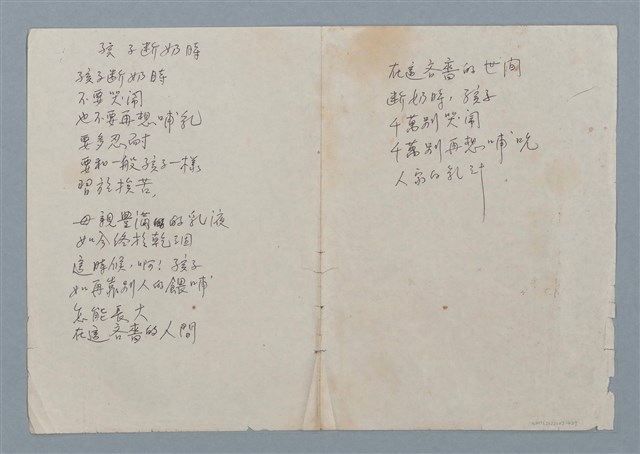 孩子断奶時
孩子断奶時
不要哭闹
也不要再想哺乳
要多忍耐
要和一般孩子一樣
習於挨苦。
母親豐滿的乳液
如今終於乾涸
這時候,啊!孩子
如再靠別人的餵哺
怎能長大
在這吝嗇的人間
在這吝嗇的世間
断奶時,孩子
千萬別哭闹
千萬別再想哺吮
人家的乳汁